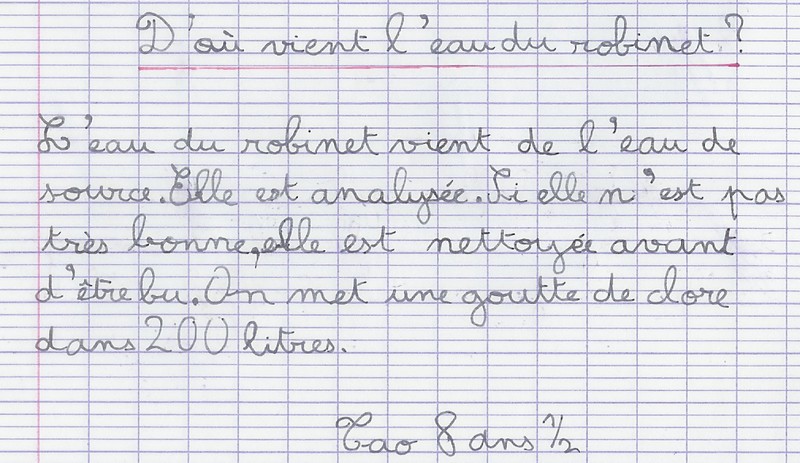 D'où vient l'eau du robinet ?
L'eau du robinet vient de l'eau de
source. Elle est analysée. Si elle n'est pas
très bonne, elle est nettoyée avant
d'être bu. On met une goutte de clore
dans 200 litres.
Tao 8 ans 1/2